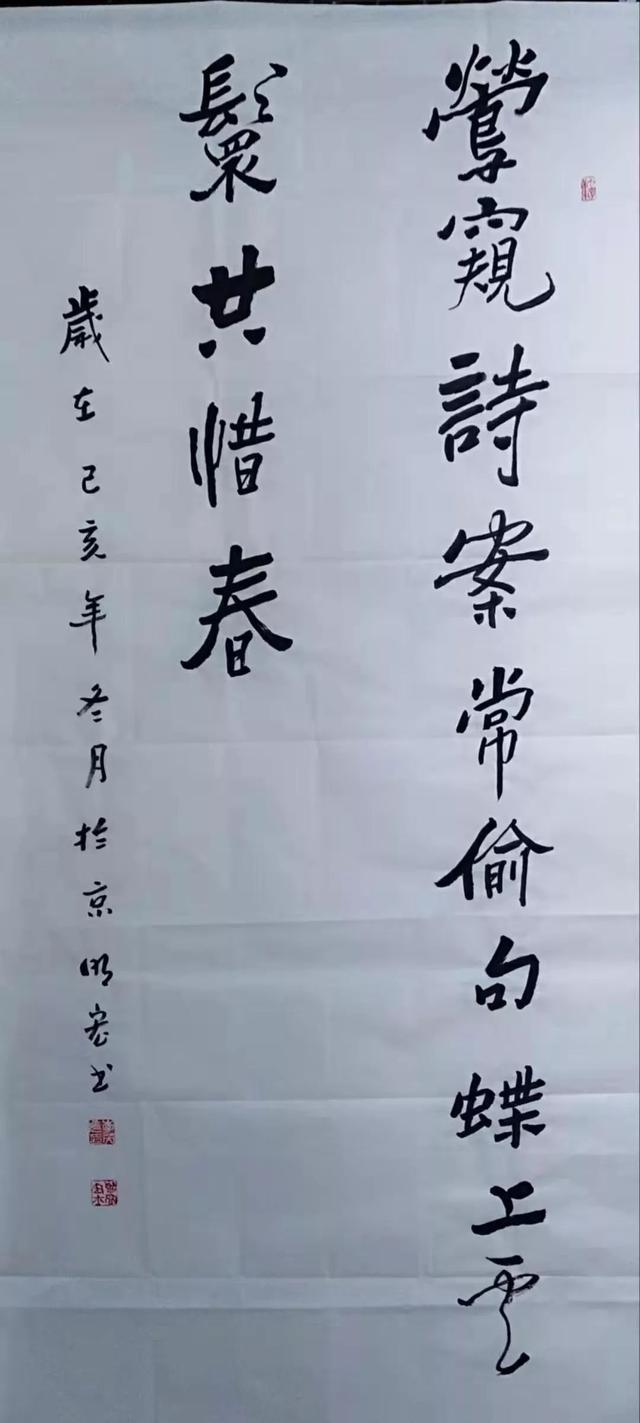 鶯窺詩案常偷句蝶上雲
鬟共惜春
歲在己亥年冬月於京明宏书